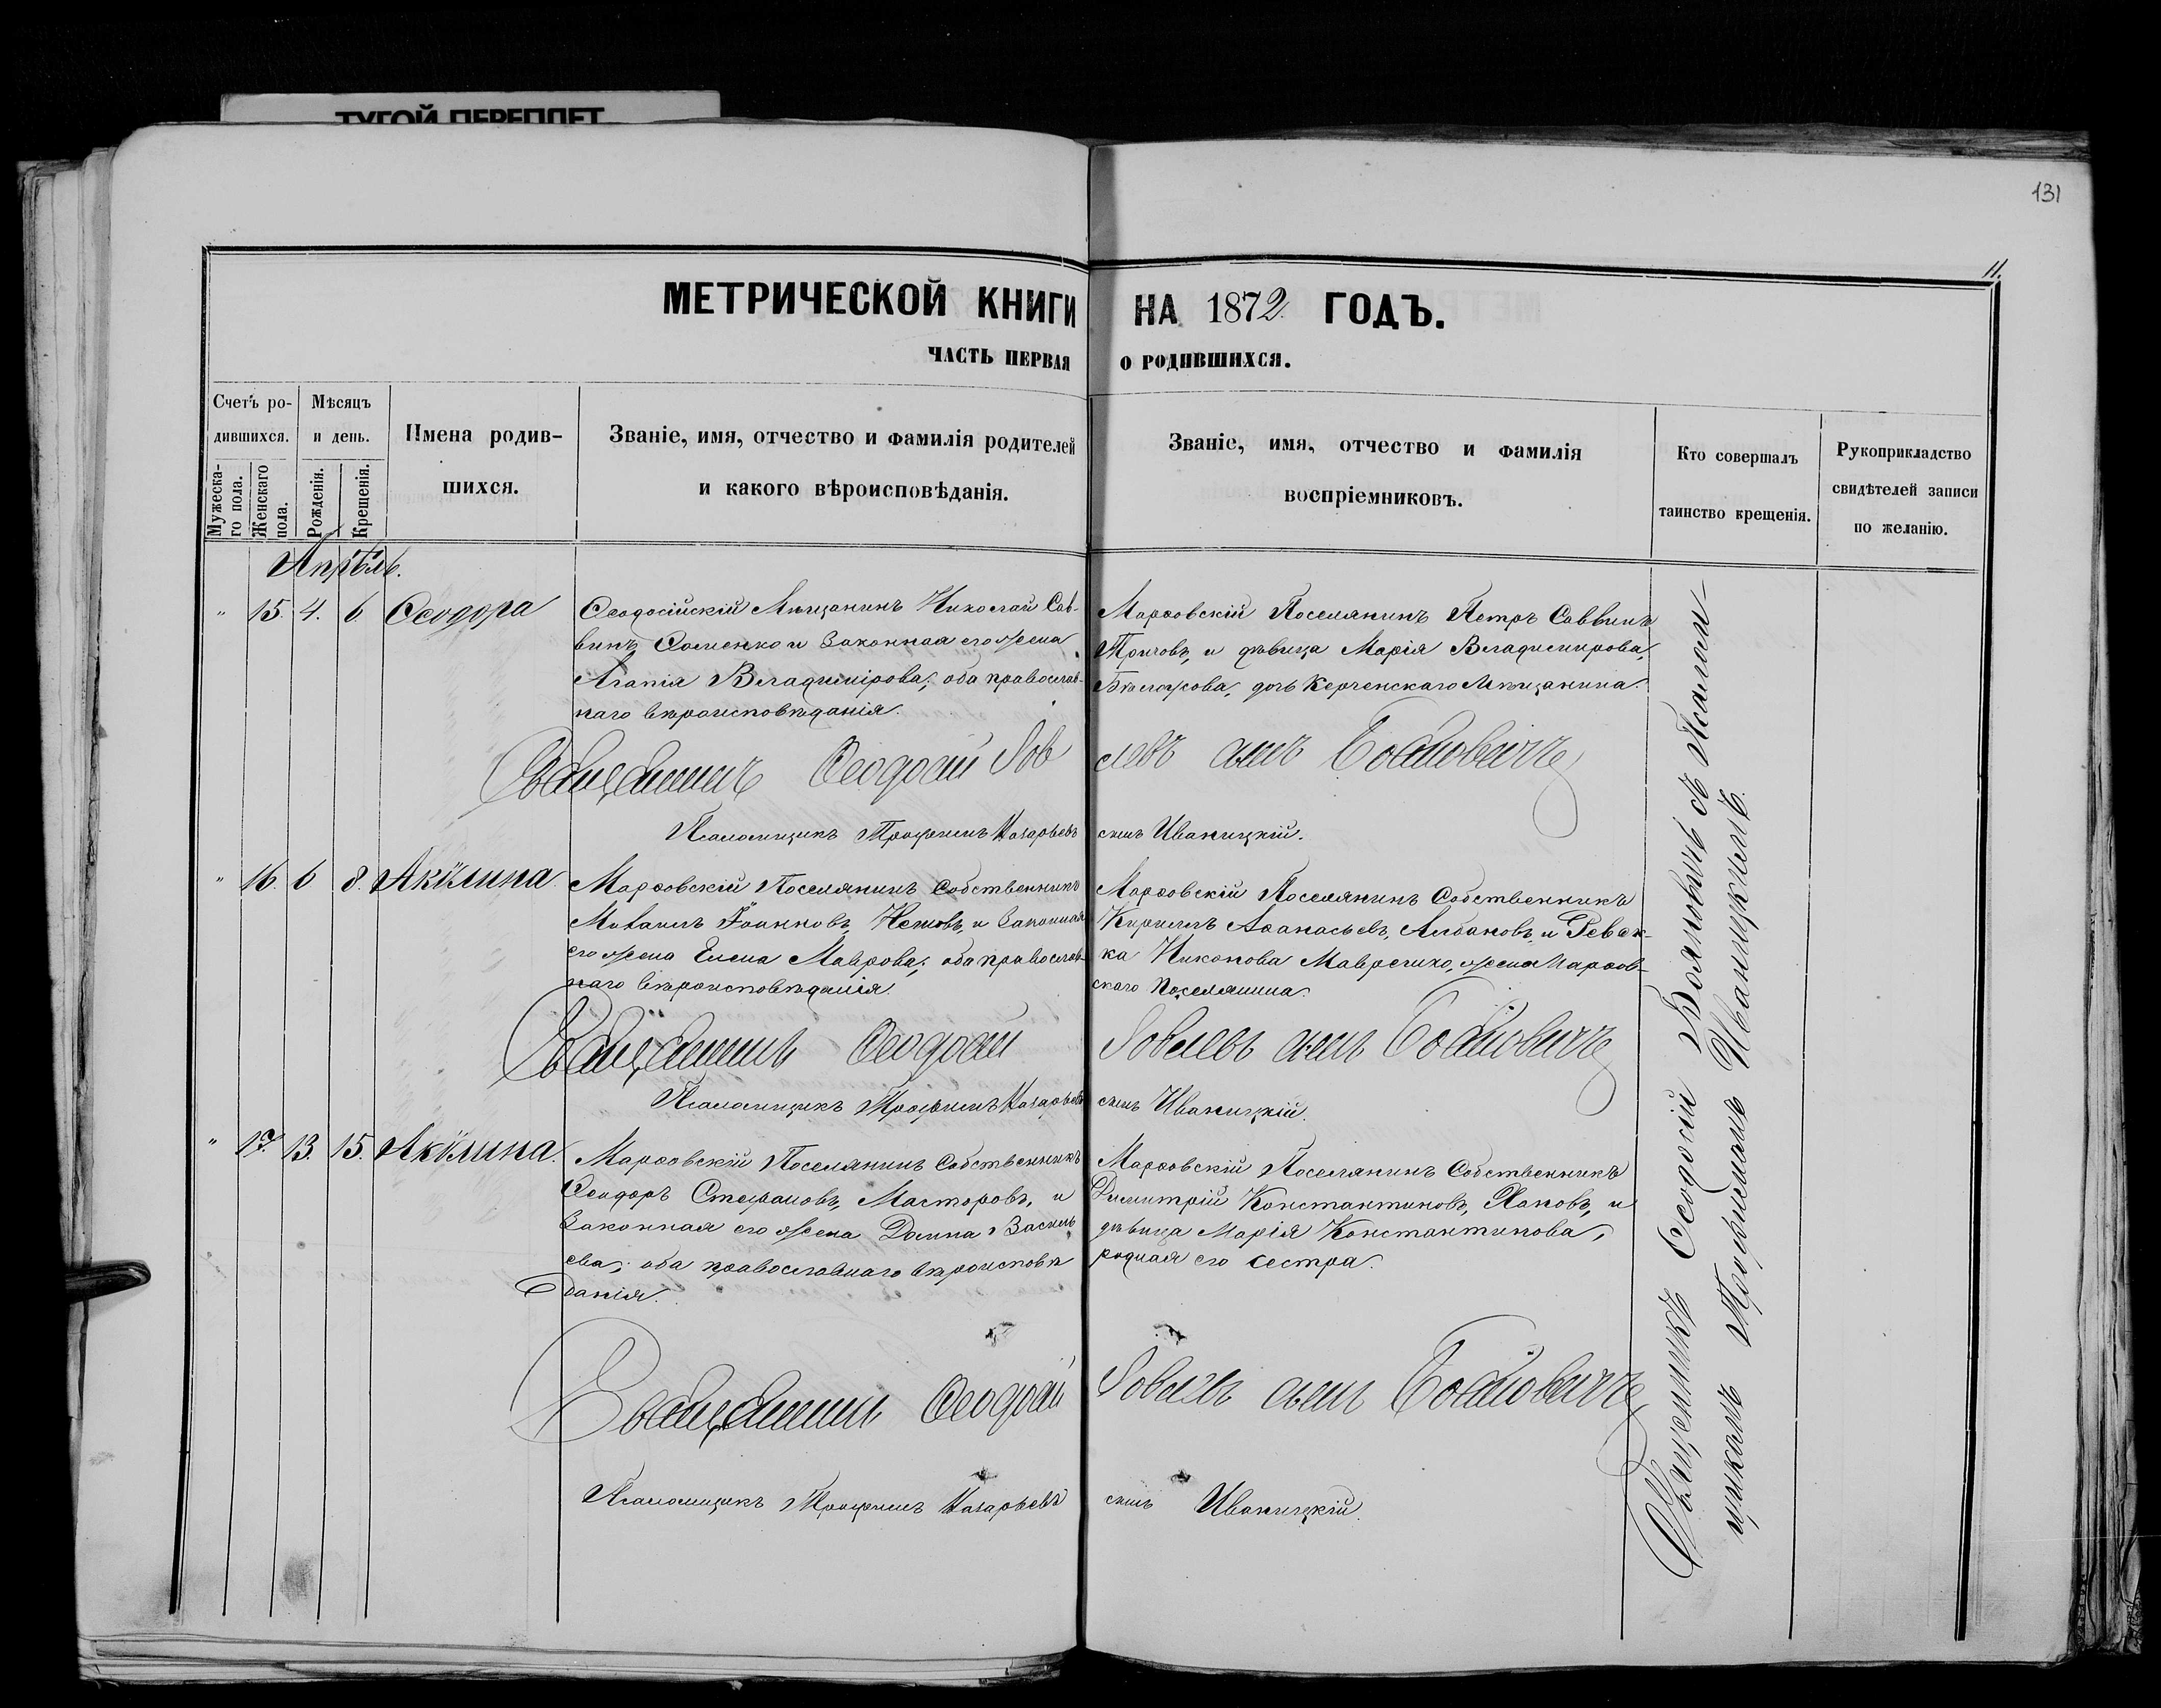 ТУГОЙ ПЕРЕПЛЕТ
131
11.
МЕТРИЧЕСКОЙ КНИГИ НА 1872 ГОДЪ.
ЧАСТЬ ПЕРВАЯ О РОДИВШИХСЯ.
Счетъ ро-
дившихся.
Мужеска-
го пола.
Женскаго
пола.
Мѣсяцъ
и день.
Рожденія.
Крещенія.
Имена родив-
шихся.
Званіе, имя, отчество и фамилія родителей
и какого вѣроисповѣданія.
Званіе, имя, отчество и фамилія
воспріемниковъ.
Кто совершалъ
таинство крещенія.
Рукоприкладство
свидѣтелей записи
по желанію.
Апрѣль.
" 15. 4. 6 Ѳеодора
Ѳеодосійскій Мѣщанинъ Николай Сав-
винъ Ѳоменко и Законная его жена
Агапія Владимірова; оба православ-
наго вѣроисповѣданія.
Марѳовскій Поселянинъ Петръ Саввинъ
и дѣвица Марія Владимирова,
дочь Керченскаго Мѣщанина.
Священникъ Ѳеодосій
Псаломщикъ Трофимъ Назарьевъ сынъ Иваницкій.
" 16. 6 8. Акѵлина
Марѳовскій Поселянинъ Собственникъ
Михаилъ Іоанновъ, и Законная
его жена Елена Маврова; оба православ-
наго вѣроисповѣданія.
Марѳовскій Поселянинъ Собственникъ
Кириллъ Аѳанасьевъ, Албановъ и Ревек-
ка Никонова жена Марѳов-
скаго Поселянина.
Священникъ Ѳеодосій
Псаломщикъ Трофимъ Назарьевъ сынъ Иваницкій.
" 17. 13. 15. Акѵлина.
Марѳовскій Поселянинъ Собственникъ
Ѳеодоръ Стефановъ, Масторовъ, и
Законная его жена Домна Василь
ева; оба православнаго вѣроисповѣ
данія.
Марѳовскій Поселянинъ Собственникъ
Димитрій Константиновъ, и
дѣвица Марія Константинова,
родная его сестра.
Священникъ Ѳеодосій
Псаломщикъ Трофимъ Назарьевъ сынъ Иваницкій.
Священникъ Ѳеодосій съ Псалом-
щикомъ Трофимомъ Иваницкимъ.